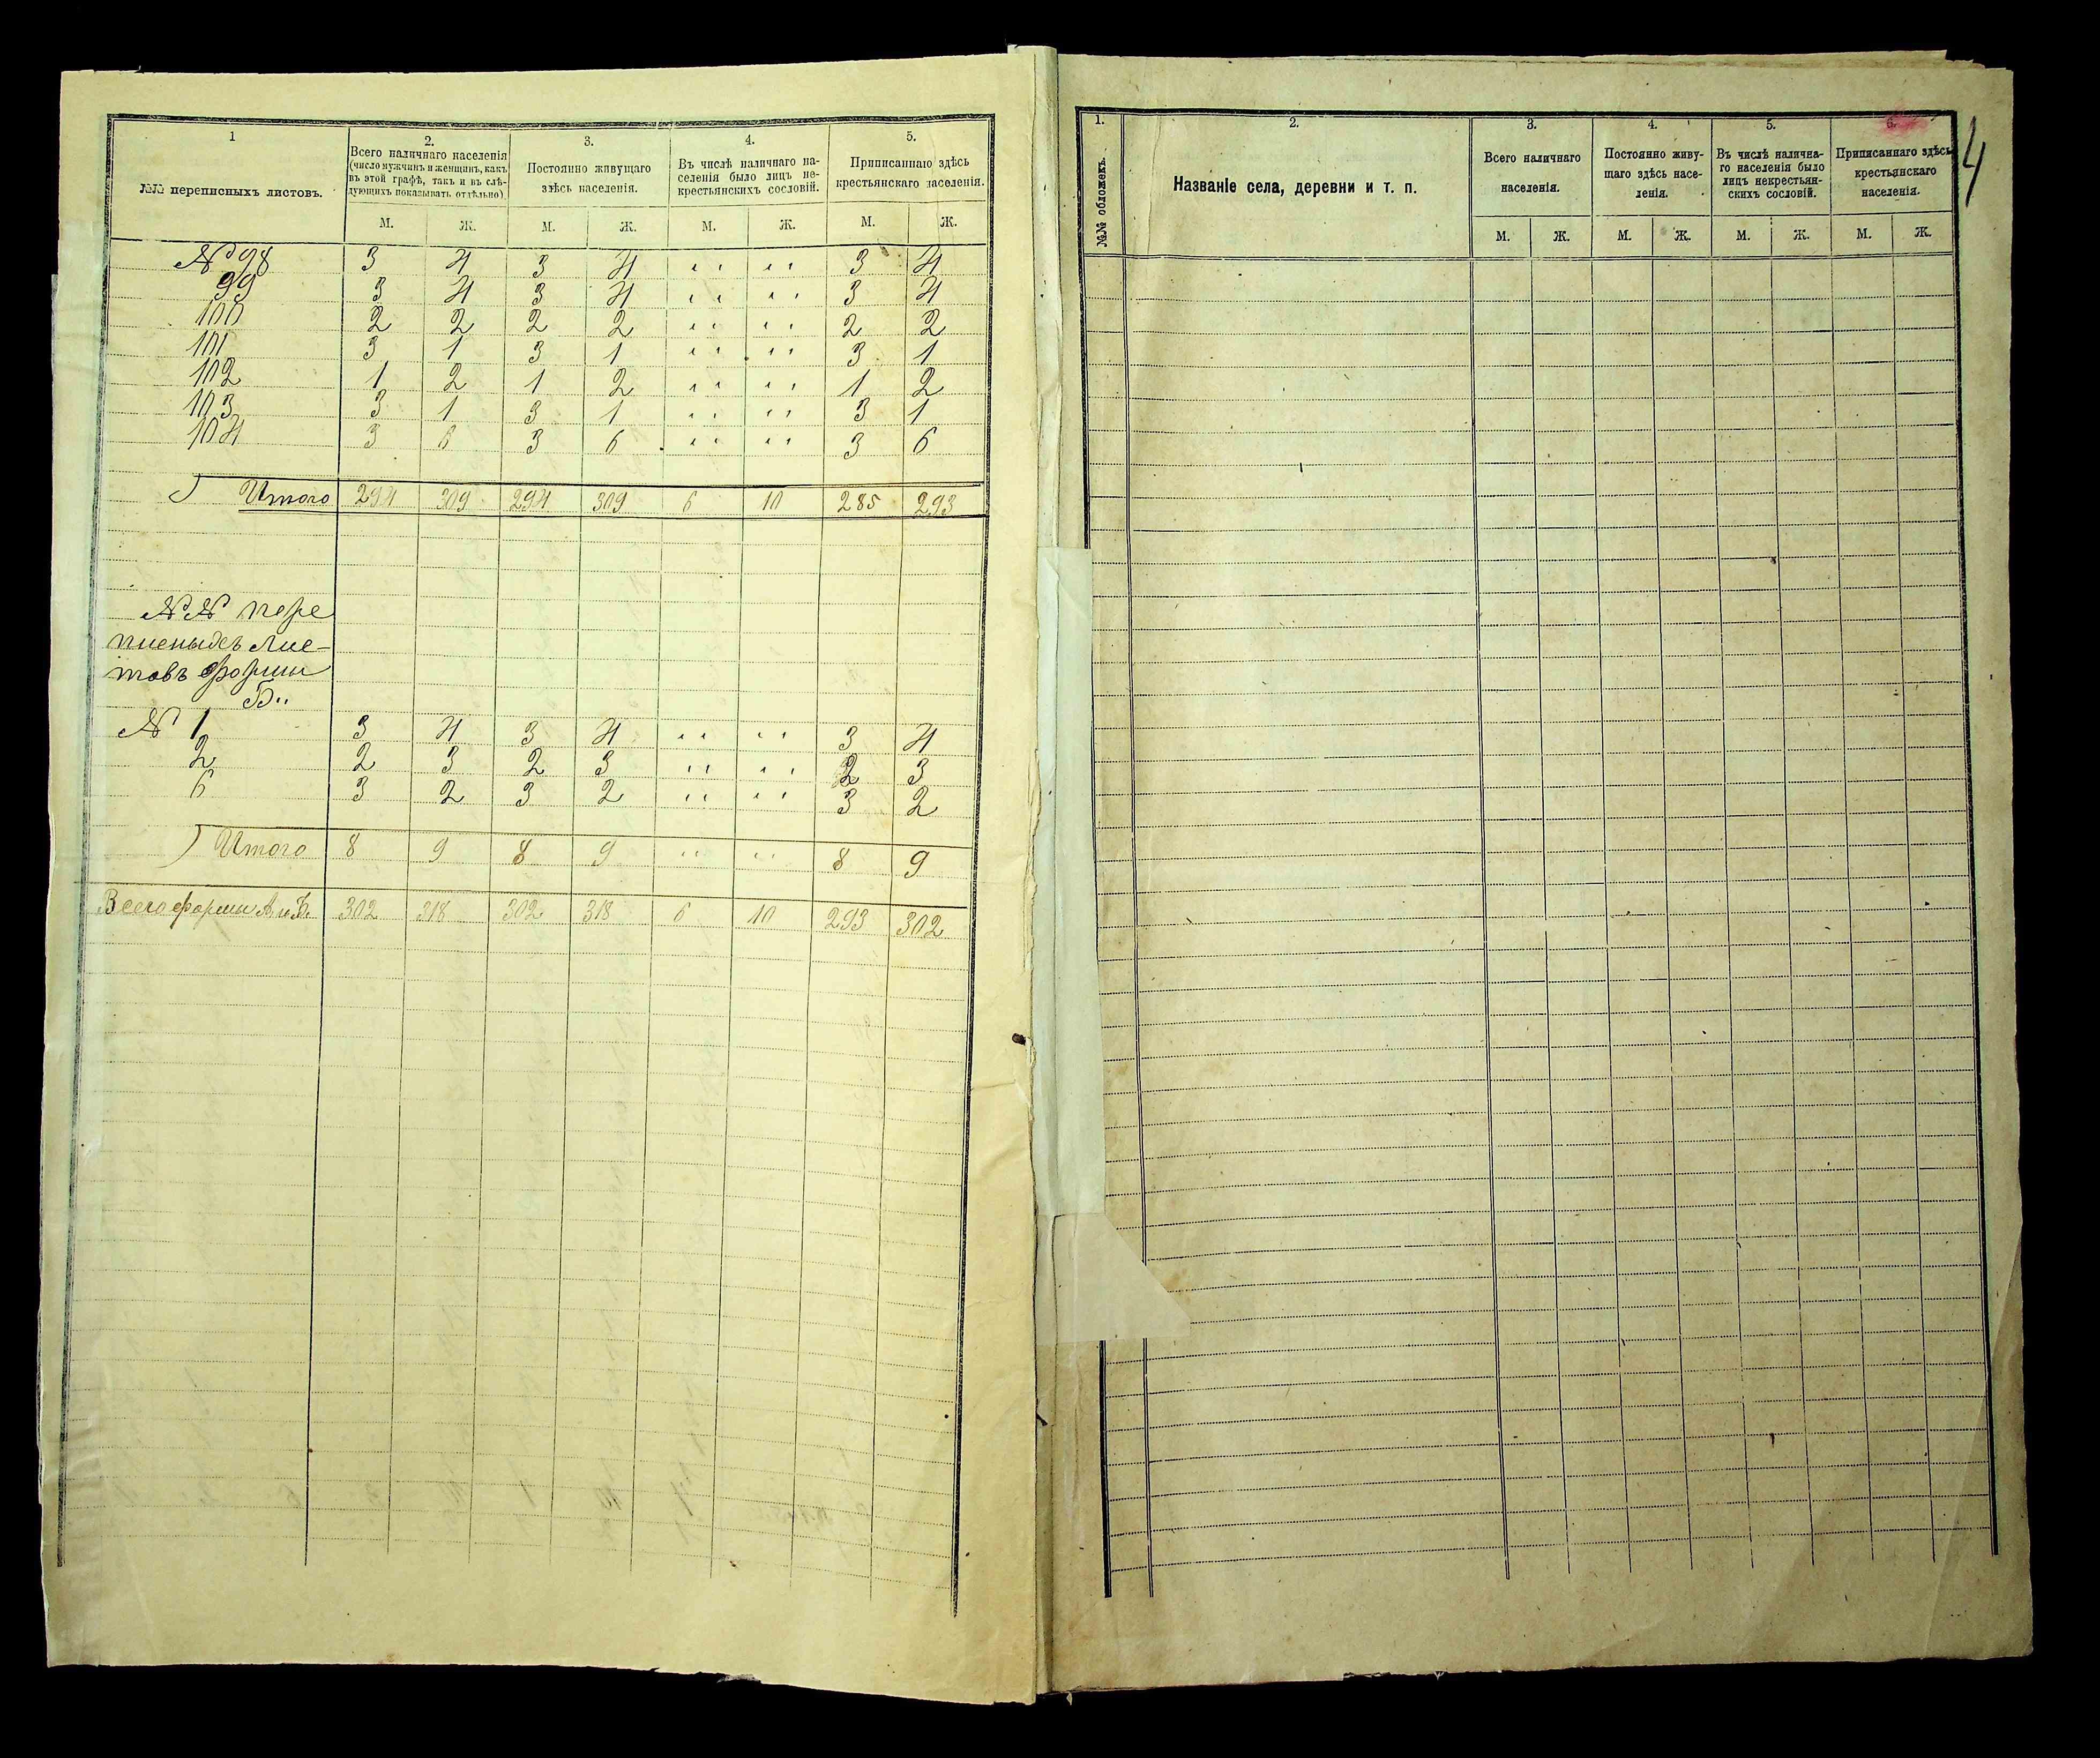 1
№№ переписныхъ листовъ.
2.
Всего наличнаго населенія
(число мужчинъ и женщинъ, какъ
въ этой графѣ, такъ и въ слѣ-
дующихъ показывать отдѣльно)
3.
Постоянно живущаго
здѣсь населенія.
4.
Въ числѣ наличнаго на-
селенія было лицъ не-
крестьянскихъ сословій.
5.
Приписаннаго здѣсь
крестьянскаго населенія.
М. Ж. М. Ж. М. Ж. М. Ж.
№ 98 3 4 3 4 " " 3 4
99 3 4 3 4 " " 3 4
100 2 2 2 2 " " 2 2
101 3 1 3 1 " " 3 1
102 1 2 1 2 " " 1 2
103 3 1 3 1 " " 3 1
104 3 6 3 6 " " 3 6
Итого 294 309 294 309 6 10 285 293
№№ пере
писныхъ лис-
товъ формы
Б"
№ 1 3 4 3 4 " " 3 4
2 2 3 2 3 " " 2 3
6 3 2 3 2 " " 3 2
Итого 8 9 8 9 " " 8 9
Всего формы А и Б. 302 318 302 318 6 10 293 302
4
1.
№№ обложекъ.
2.
Названіе села, деревни и т. п.
3.
Всего наличнаго
населенія.
4.
Постоянно живу-
щаго здѣсь насе-
ленія.
5.
Въ числѣ налична-
го населенія было
лицъ некрестьян-
скихъ сословій.
6.
Приписаннаго здѣсь
крестьянскаго
населенія.
М. Ж. М. Ж. М. Ж. М. Ж.